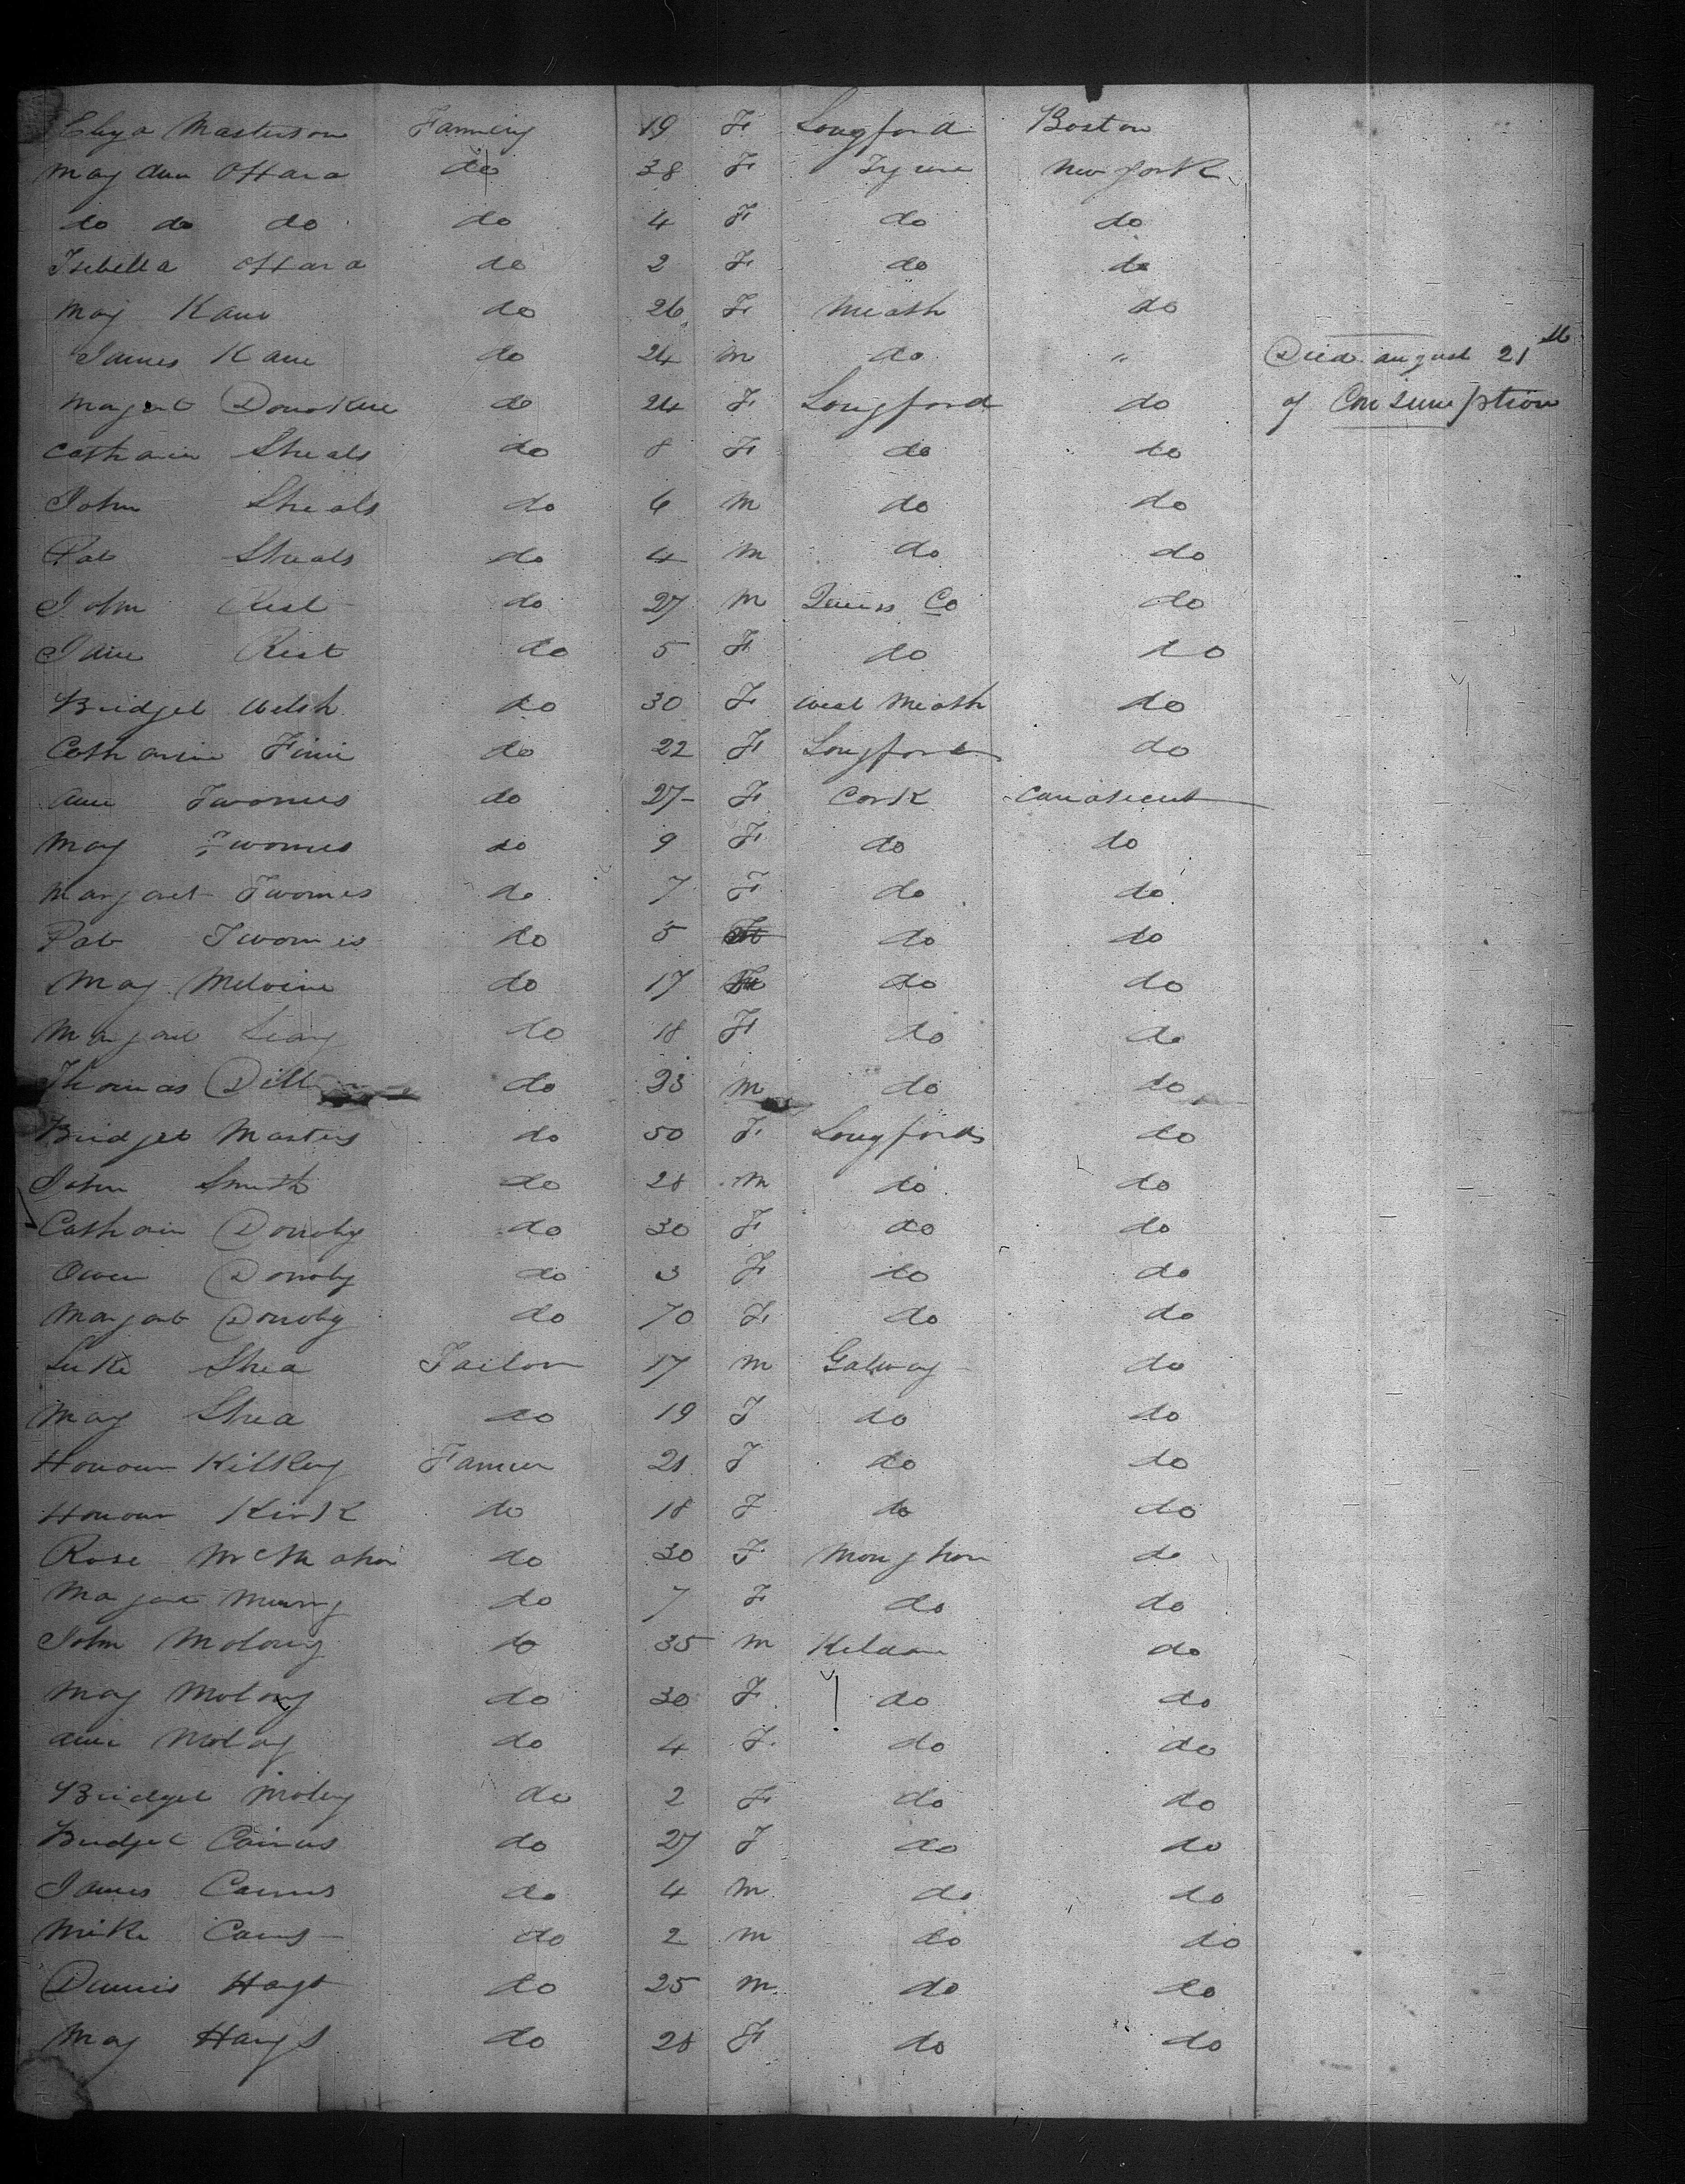 Eliza Masterson Farming 19 F Longford Boston
May Ann OHara do 38 F Tyrone New york
do do do do 4 F do do
Isebella OHara do 2 F do do
May Kane do 26 F Meath do
James Kane do 24 m do " Died august 21st
Margart Donokue do 24 F Longford do of Consumption
Catharin Sheals do 8 F do do
John Sheals do 6 m do do
Pat Sheals do 4 m do do
John Rist do 27 m Queens Co do
Jane Rist do 5 F do do
Bridget Welsh do 30 F West Meath do
Catharine Finie do 22 F Longford do
Ann Twomes do 27 F Cork
May Twomes do 9 F do do
Margaret Twomes do 7 F do do
Pat Twomes do 5 do do
May do 17 do do
Margaret Leary do 18 F do do
Thomas do 23 m do do
Bridget Masters do 50 F Longford do
John Smith do 28 m do do
Catharin do 30 F do do
Owen do 3 F do do
Margart do 70 F do do
Luke Shea Tailor 17 m Galway do
May Shea do 19 F do do
Honour Kilkey Farmer 21 F do do
Honour Kirk do 18 F do do
Rose McMahon do 30 F Monghan do
Margaret Murry do 7 F do do
John Molony do 35 m Kildare do
May Molony do 30 F do do
Ann Moloy do 4 F do do
Bridget Moloy do 2 F do do
Bridget Cairns do 27 F do do
James Cairns do 4 m do do
Mike Cairns do 2 m do do
Dennis Hays do 25 m do do
May Hays do 28 F do do